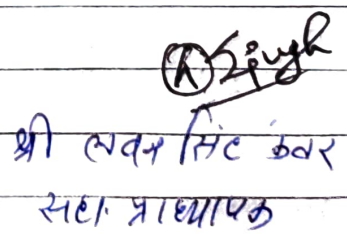 Singh
श्री लवन सिंह कंवर
सहा. प्राध्यापक